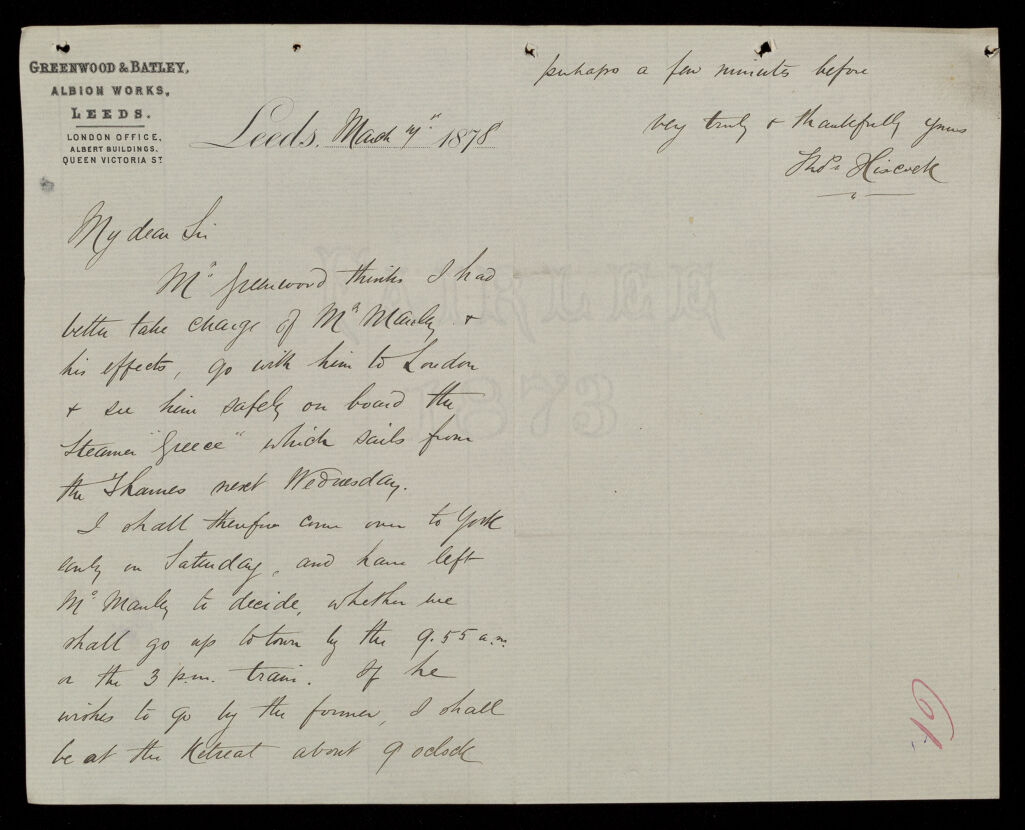 GREENWOOD & BATLEY,
ALBION WORKS,
LEEDS.
LONDON OFFICE,
ALBERT BUILDINGS,
QUEEN VICTORIA ST
Leeds, March 1878
My dear Sir
Mr Greenwood thinks I had
better take charge of Mr Manley &
his effects, go with him to London
& see him safely on board the
Steamer "Greece" which sails from
the Thames next Wednesday.
I shall therefore come over to York
early on Saturday, and have left
Mr Manley to decide, whether we
shall go up to town by the 9.55 a.m.
or the 3 p.m. train. If he
wishes to go by the former, I shall
be at the Retreat about 9 oclock
perhaps a few minutes before
very truly & thankfully yours
Thos Hiscock
FAIRLEE
1873